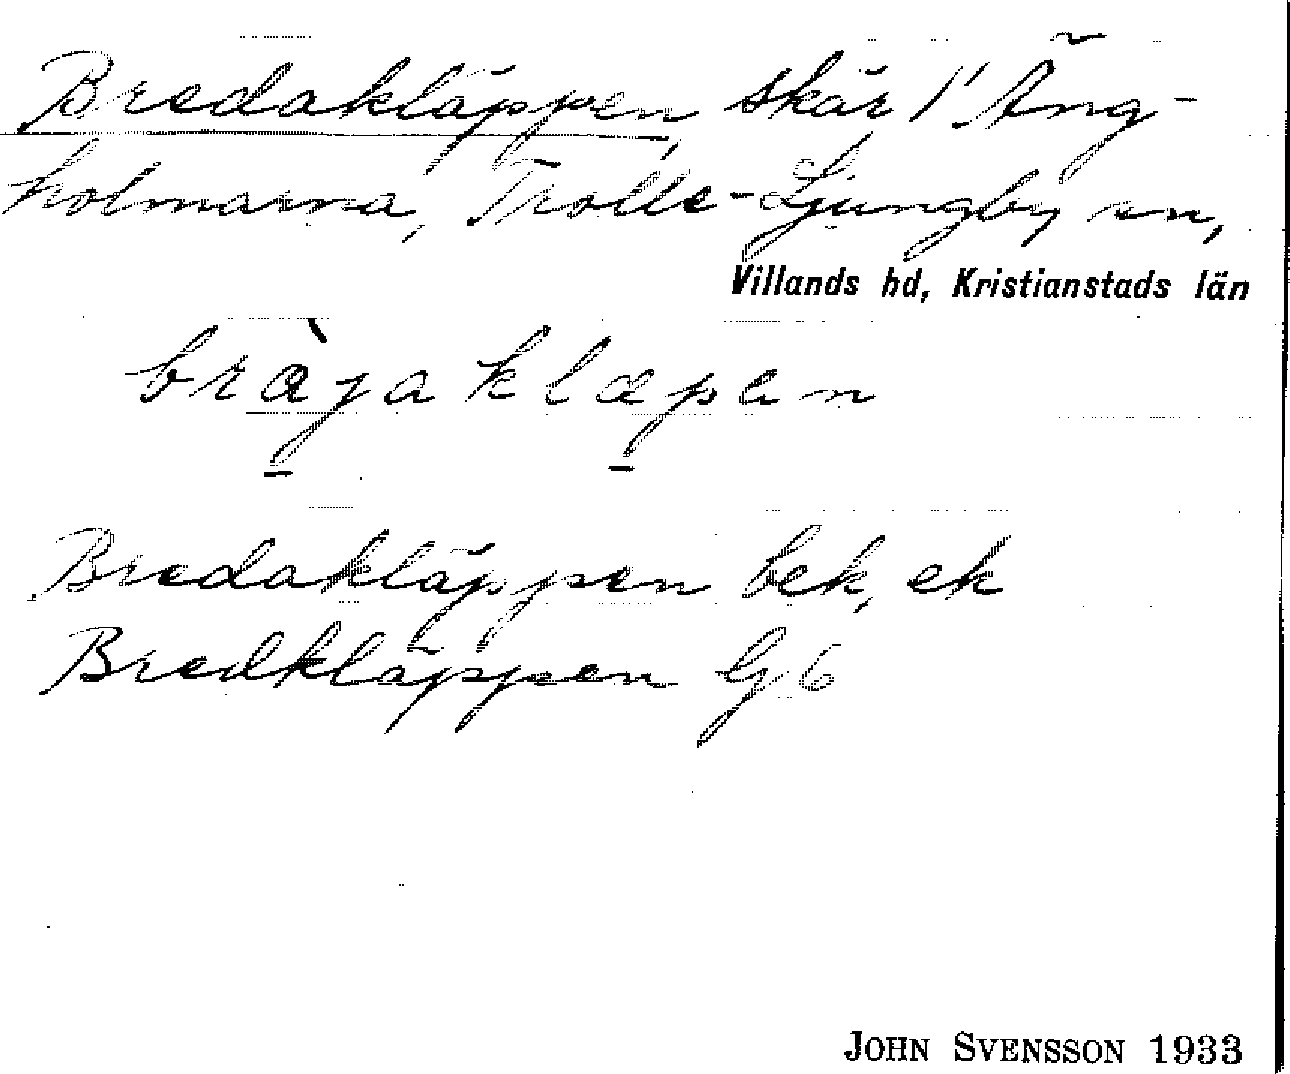 Bredakläppen, skär i Äng-
holmarna, Trolle-Ljungby sn,
Villands hd, Kristianstads län
bræ̀jaklæpen
Bredakläppen bek, ek
Bredkläppen Gj 6
JOHN SVENSSON 1933